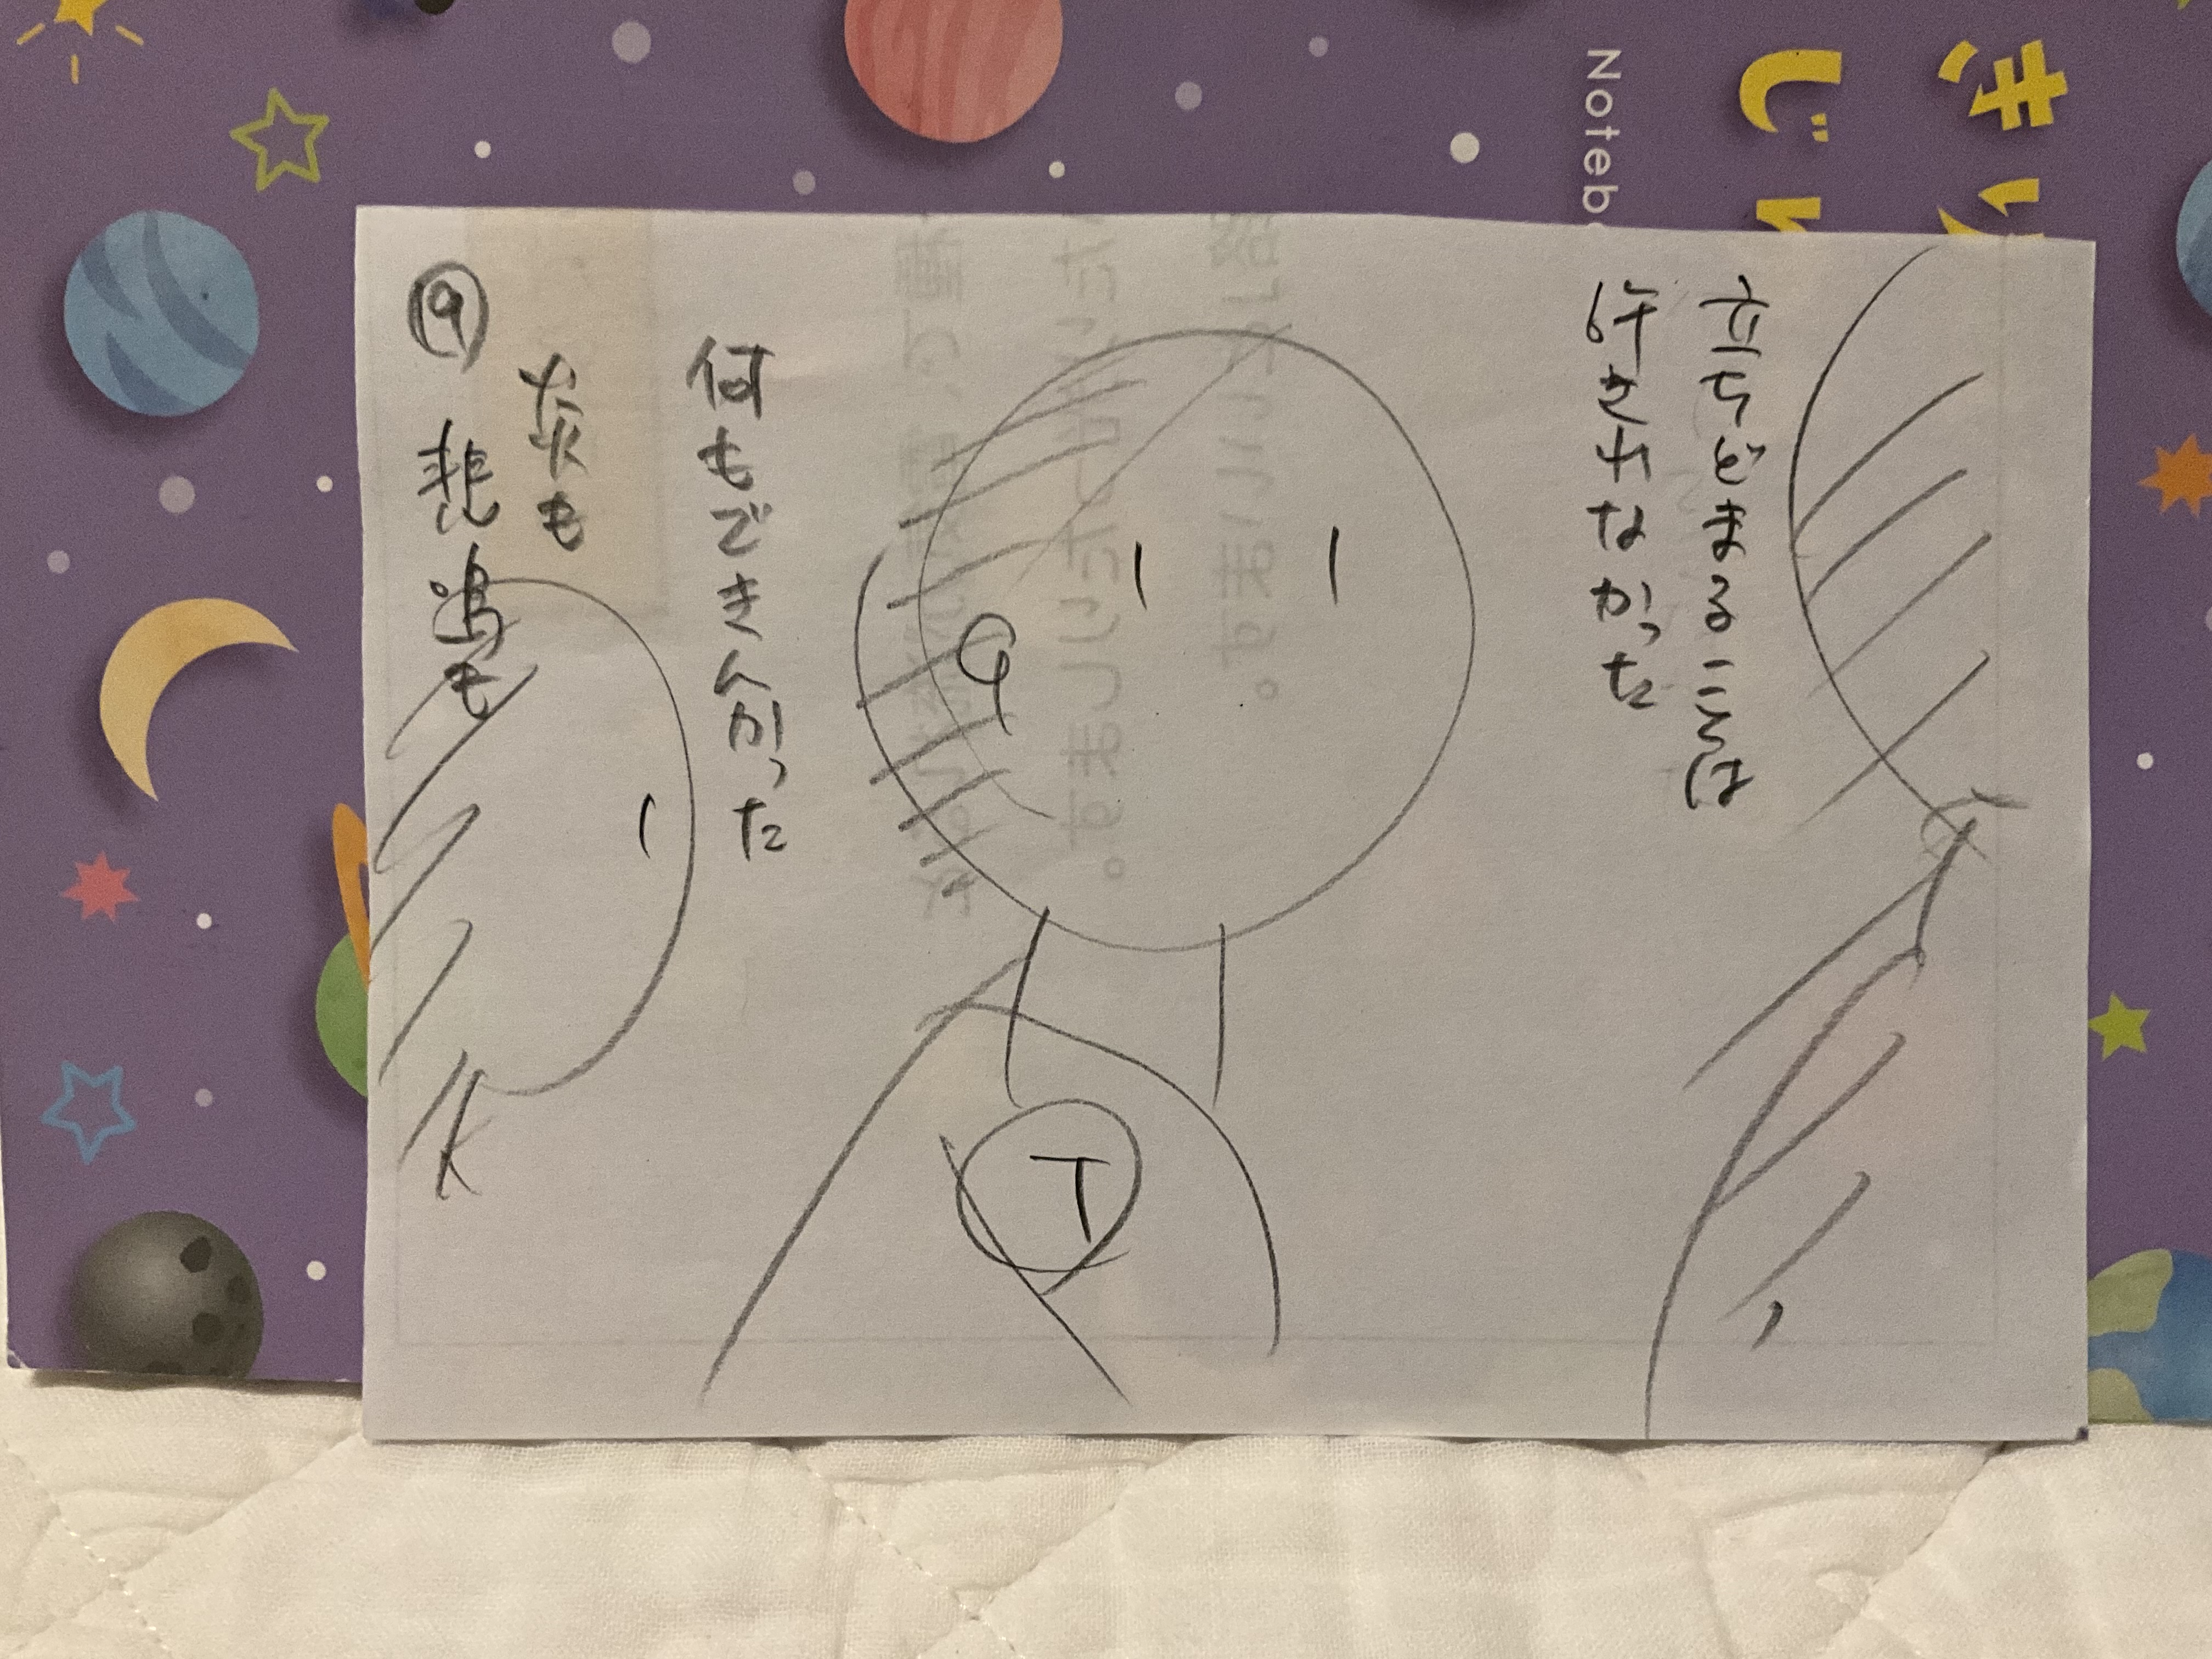 Noteb
立ちどまることは
許されなかった
何もできんかった
炎も
悲鳴も
⑲
T